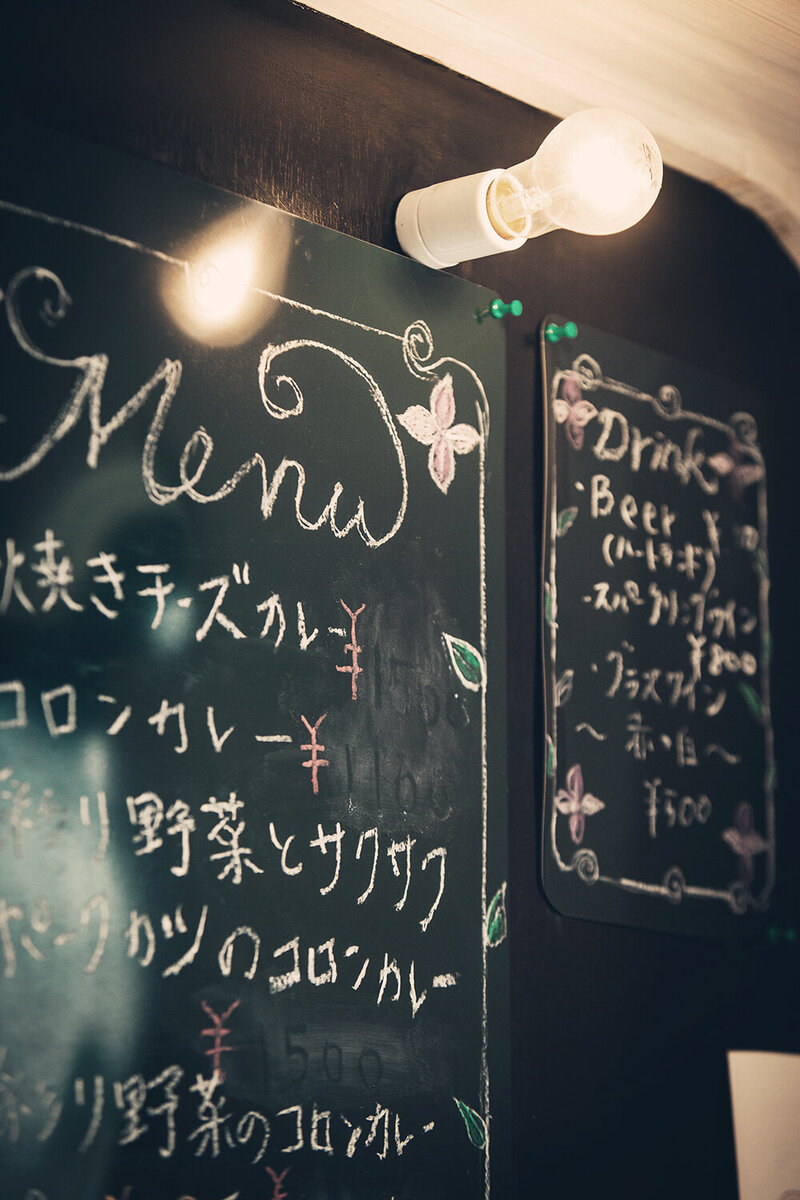 Menu
焼きチーズカレー ¥1500
コロンカレー ¥1100
彩り野菜とサクサク
ポークカツのコロンカレー
¥1500
彩り野菜のコロンカレー
¥
Drink
・Beer ¥
(ハートランド)
・スパークリングワイン
¥800
・グラスワイン
～赤・白～
¥500